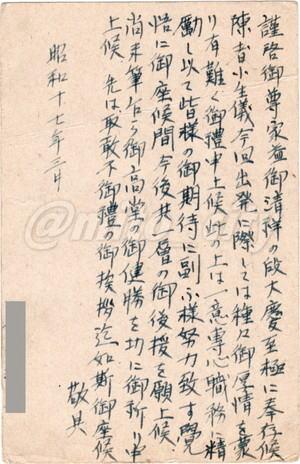 謹啓御尊家益御清祥の段大慶至極に奉存候
陳者小生儀今回出発に際しては種々御厚情を蒙
り有難く御禮申上候此の上は一意専心職務に精
励し以て皆様の御期待に副ふ様努力致す覚
悟に御座候間今後共一層の御後援を願上候
尚末筆乍ら御高堂の御健勝を切に御祈り申
上候 先は取敢不御禮の御挨拶迄如斯御座候
敬具
昭和十七年三月